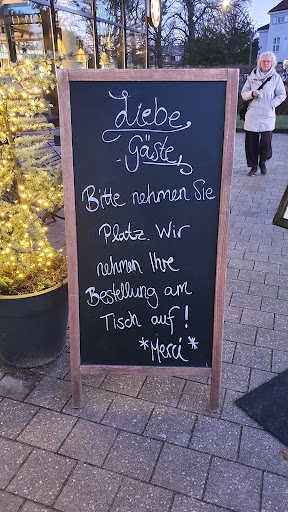 Liebe
- Gäste,
Bitte nehmen Sie
Platz. Wir
nehmen Ihre
Bestellung am
Tisch auf!
*Merci*